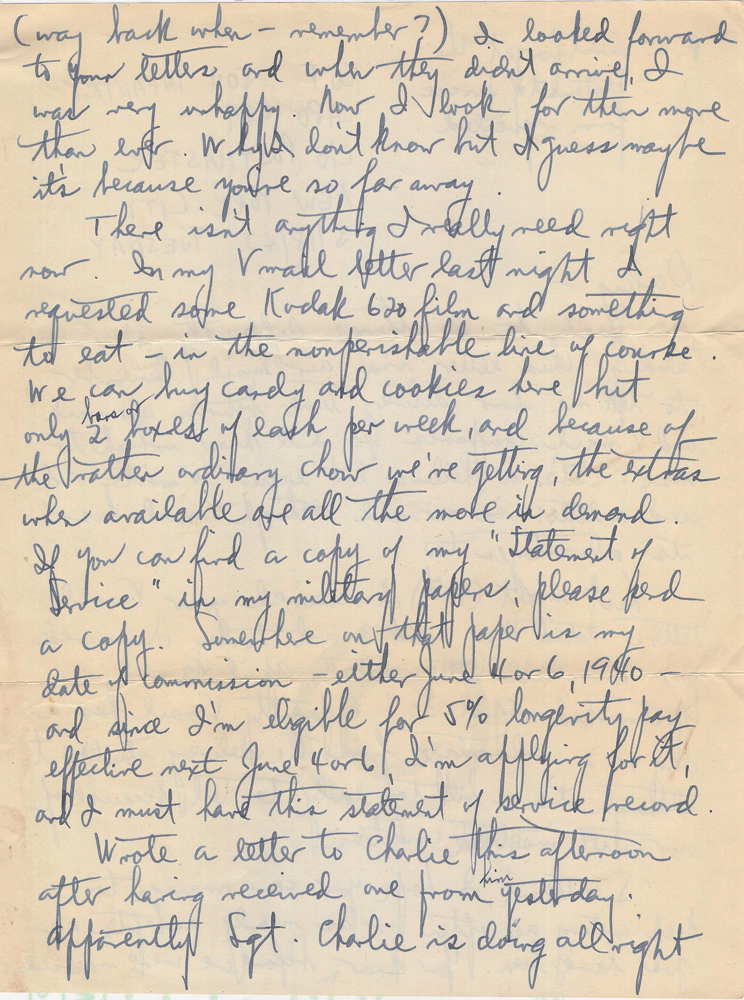 (way back when – remember?) I looked forward
to your letters and when they didn't arrive, I
was very unhappy. Now I look for them more
than ever. Why I don't know but I guess maybe
it's because you're so far away.
There isn't anything I really need right
now. In my Vmail letter last night I
requested some Kodak 620 film and something
to eat – in the nonperishable line of course.
We can buy candy and cookies here but
bars or
only 2 boxes of each per week, and because of
the rather ordinary chow we're getting, the extras
when available are all the more in demand.
If you can find a copy of my "Statement of
Service" in my military papers, please send
a copy. Somewhere on that paper is my
date of commission – either June 4 or 6, 1940 –
and since I'm eligible for 5% longevity pay
effective next June 4 or 6, I'm applying for it,
and I must have this statement of service record.
Wrote a letter to Charlie this afternoon
after having received one from him yesterday.
Apparently Sgt. Charlie is doing all right